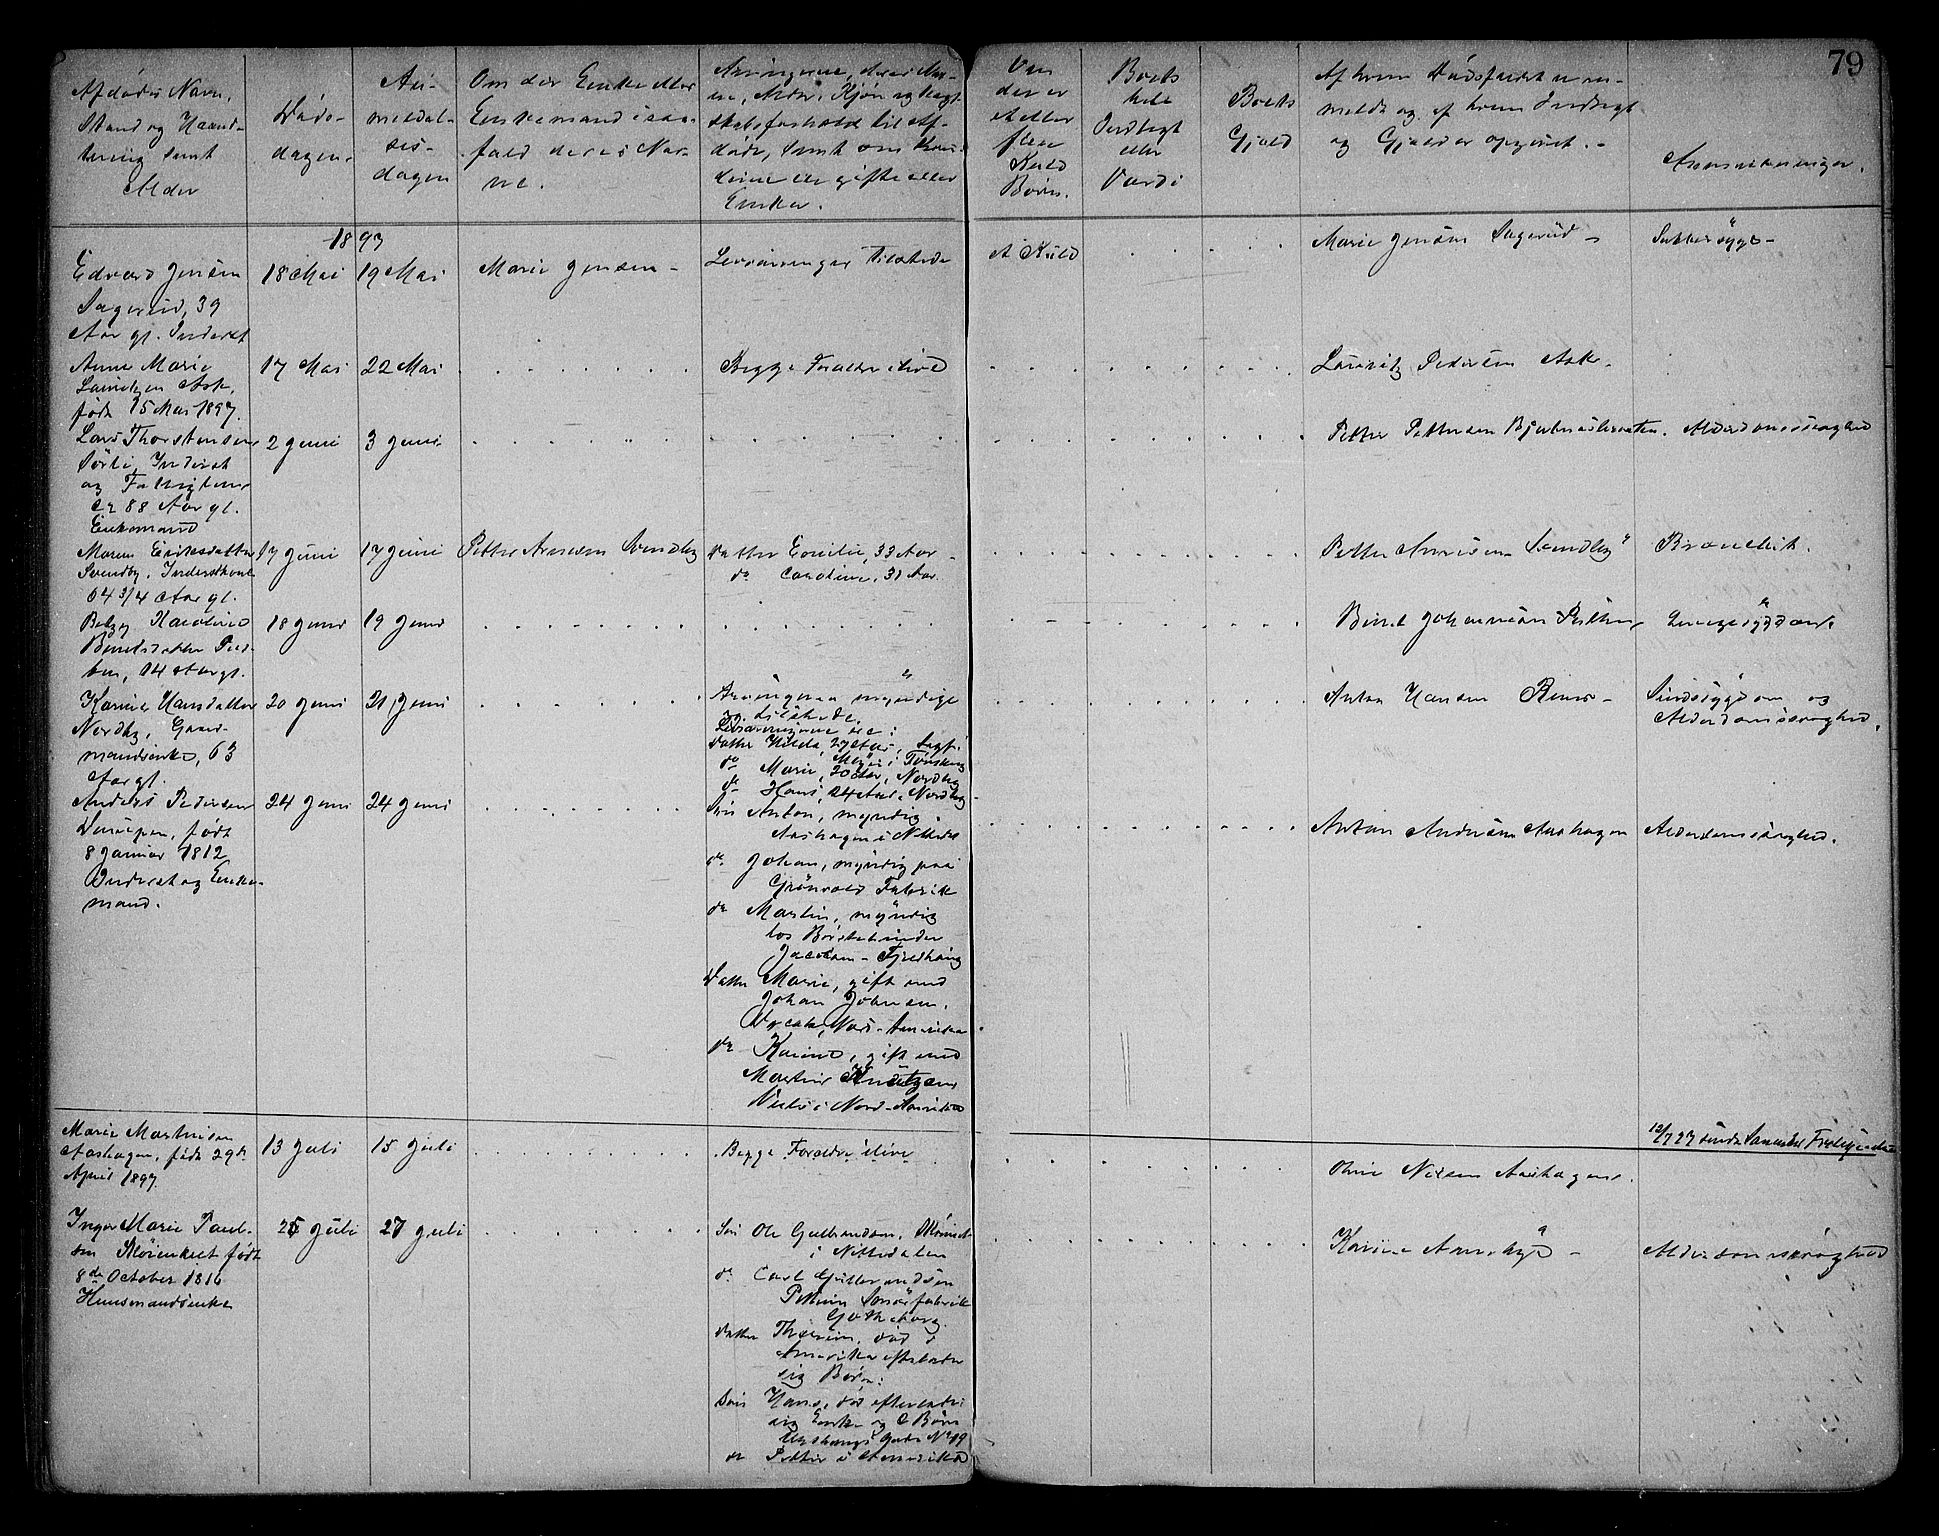 79
Afdødes Navn,
Stand og Haand-
tering samt
Alder
Døds-
dagen
An-
meldel-
ses-
dagen
Om der Enke eller
Enkemand i saa-
fald deres Nav-
ne.
Arvingerne, deres Nav-
ne, Alder, Kjøn og Slægt-
skabsforhold til Af-
døde, samt om Kvin-
derne ere gifte eller
Enker.
Om
der er
et eller
flere
Kuld
Børn.
Boets
hele
Indtægt
eller
Værdi
Boets
Gjæld
Af hvem Dødsfaldet er an-
meldt og af hvem Indtægt
og Gjæld er opgivet.
Anmærkninger.
1897
Edvard Jensen
Sagerud, 39
Aar gl. Inderst
18 Mai
19 Mai
Marie Jensen
Livsarvinger tilstede
et Kuld
Marie Jensen Sagerud
Sukkersyge
Anne Marie
Lauritzen Ask,
født 15 Mai 1897.
17 Mai
22 Mai
Begge Forældre i live
Lauritz Pedersen Ask
Lars Thorstensen
Sørli, Inderst
og Fattiglem
ca 88 Aar gl.
Enkemand
2 Juni
3 Juni
Petter Pettersen
Alderdomssvaghed
Maren Eriksdatter
Svendby, Inderstkone
64 3/4 Aar gl.
17 Juni
17 Juni
Petter Arnesen Svendby
Datter Emilie, 33 Aar
do Caroline, 31 Aar.
Petter Arnesen Svendby
Bronchit.
Betzy Karoline
Berntsdatter
14 Aar gl.
18 Juni
19 Juni
Bernt Johannesen
Lungesygdom
Karine Hansdatter
Nordby, Gaard-
mandsenke, 63
Aar gl.
20 Juni
21 Juni
Arvingerne myndige
og tilstede.
Livsarvingerne ere:
Datter Hilda, 27 Aar,
do Marie, 20 Aar, Nordby
do Hans, 24 Aar, Nordby
Anton Hansen
Sindssygdom og
Alderdomssvaghed.
Anders Pedersen
født
8 Januar 1812
Inderst og Enke-
mand.
24 Juni
24 Juni
Søn Anton, myndig
Aashagen i Nittedal
do Johan, myndig paa
Grønvold Fabrik
do Martin, myndig
hos Børstebinder
Jacobsen
Datter Marie, gift med
Johan Johnsen,
Nord-Amerika
do Karine, gift med
Martin Knutzen
i Nord-Amerika
Anton Andersen Aashagen
Alderdomssvaghed.
Marie Martinsen
Aashagen, født 29de
April 1897.
13 Juli
15 Juli
Begge Forældre i live
Oline Nilsen Aashagen.
Inger Marie Paul-
sen født
8de October 1816
Huusmandsenke
25 Juli
27 Juli
Søn Ole Gulbrandsen,
i Nittedalen
do Carl Gulbrandsen
Gøtheborg
Datter død i
Amerika efterladte
sig Børn:
Søn Hans, død efterladt
sig Enke og 2 Børn
Gade No 19
do Petter i Amerika
Karine
Alderdomssvaghed